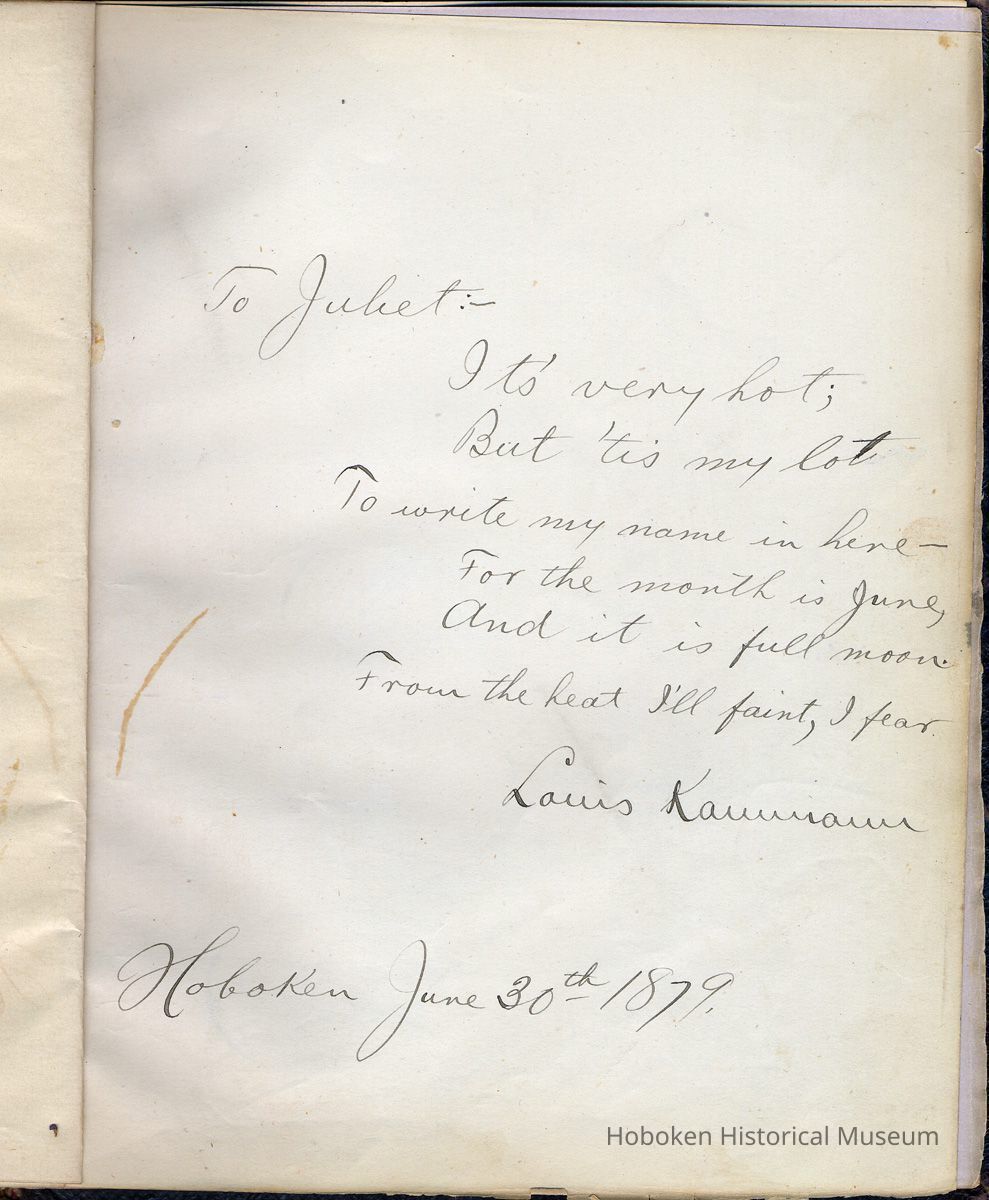 To Juliet:-
It's very hot;
But 'tis my lot
To write my name in here—
For the month is June,
And it is full moon.
From the heat I'll faint, I fear.
Louis
Hoboken June 30th 1879.
Hoboken Historical Museum